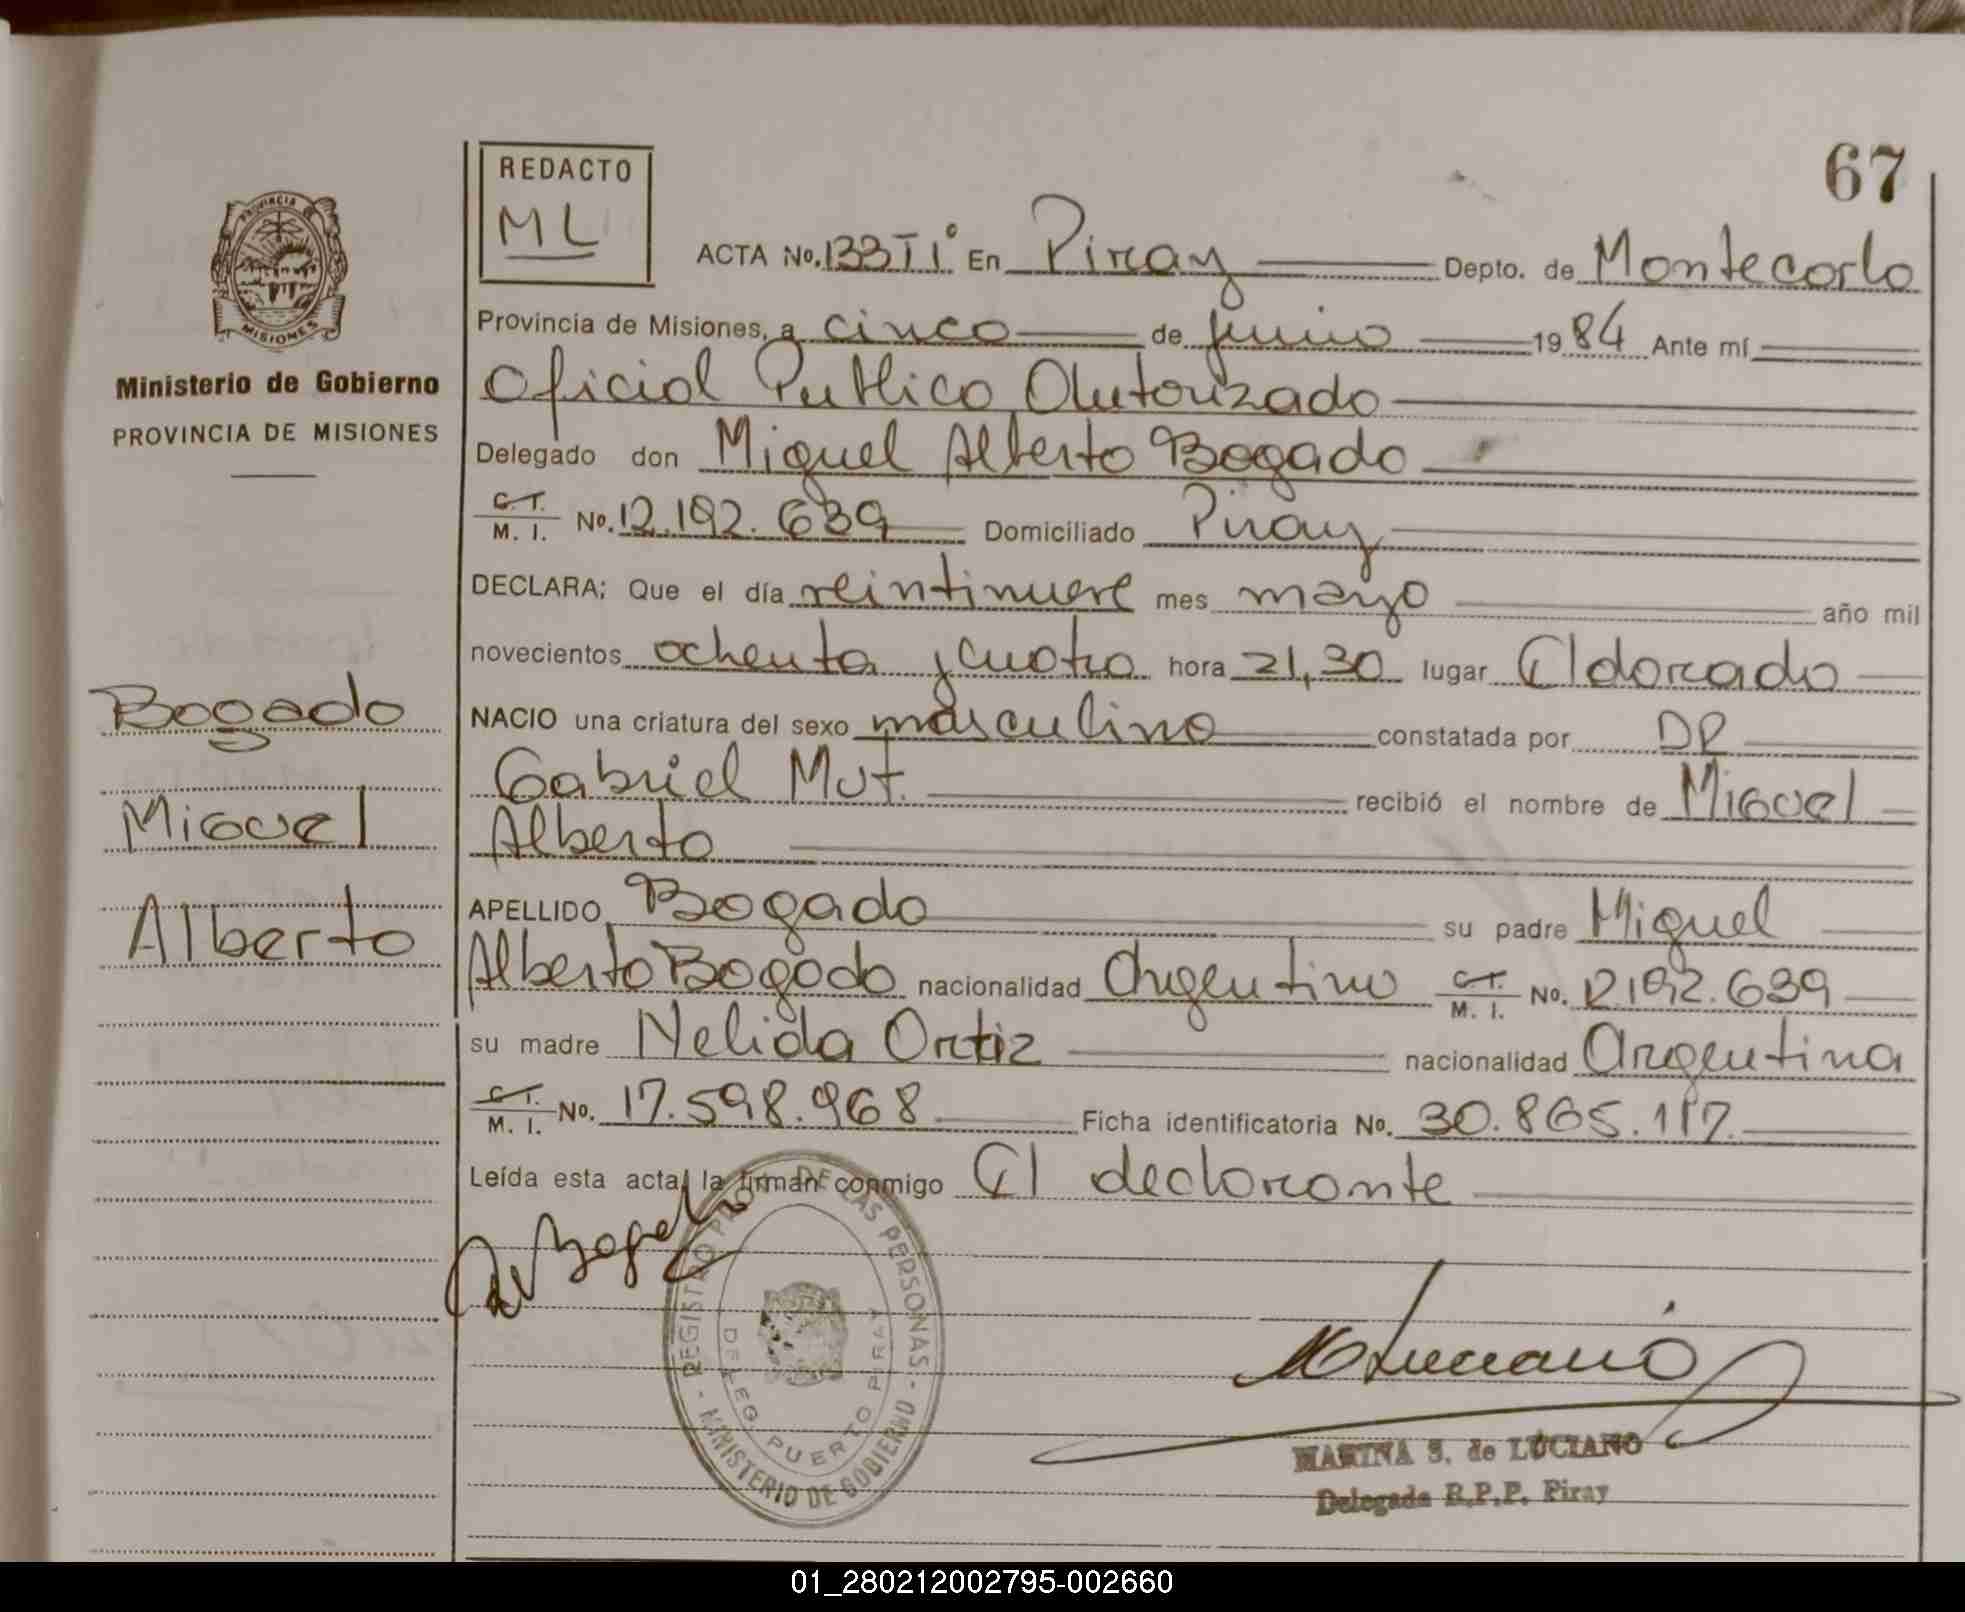 67
REDACTO
ML
PROVINCIA
MISIONES
Ministerio de Gobierno
PROVINCIA DE MISIONES
Bogado
Miguel
Alberto
ACTA No. 133 T1° En Piray Depto. de Montecarlo
Provincia de Misiones, a cinco de junio 1984 Ante mí
Oficial Publico Autorizado
Delegado don Miguel Alberto Bogado
C.T. M. I. No. 12.192.639 Domiciliado Piray
DECLARA: Que el día veintinueve mes mayo año mil
novecientos ochenta y cuatro hora 21,30 lugar Eldorado
NACIO una criatura del sexo masculino constatada por DR
Gabriel Mut. recibió el nombre de Miguel
Alberto
APELLIDO Bogado su padre Miguel
Alberto Bogado nacionalidad Argentino C.T. M. I. No. 12.192.639
su madre Nelida Ortiz nacionalidad Argentina
C.T. M. I. No. 17.598.968 Ficha identificatoria No. 30.865.117
Leída esta acta, la firman conmigo El declarante
Bogado
REGISTRO DE LAS PERSONAS - MINISTERIO DE GOBIERNO
DELEG. PUERTO PIRAY
Luciano
MARINA S. de LUCIANO
Delegada R.P.P. Piray
01_280212002795-002660